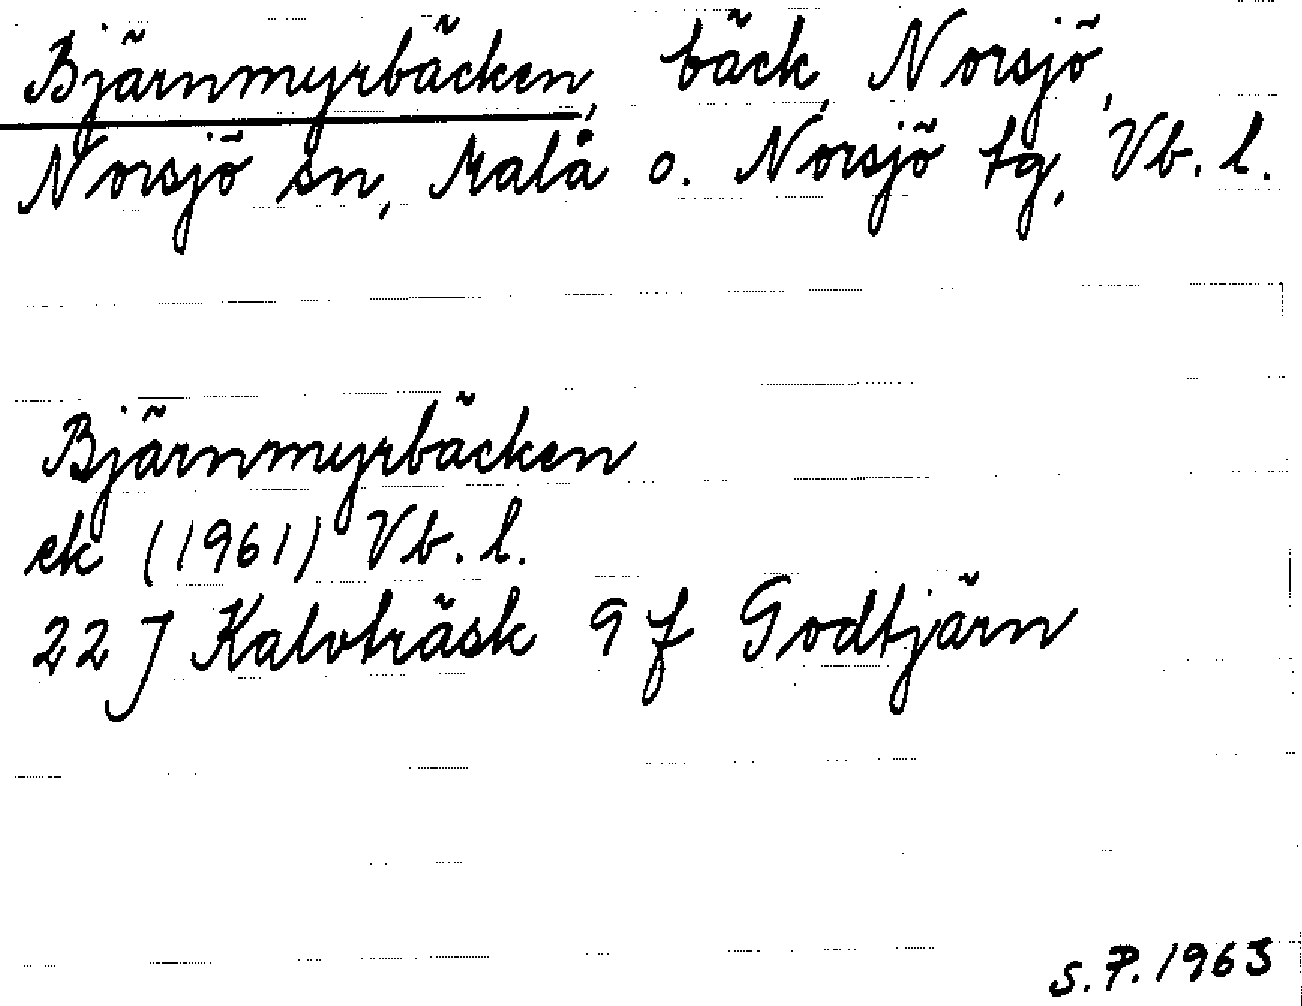 Bjärnmyrbäcken, bäck, Norsjö,
Norsjö sn, Malå o. Norsjö tg, Vb. l.
Bjärnmyrbäcken
ek (1961) Vb. l.
22 J Kalvträsk 9 f Godtjärn
S. P. 1963